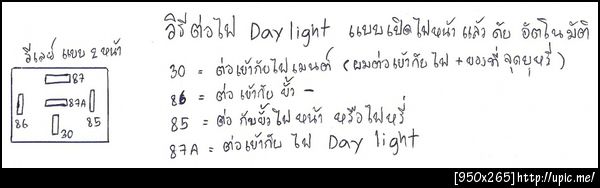 วิธีต่อไฟ Day light แบบเปิดไฟหน้าแล้วดับ อัตโนมัติ
รีเลย์ แบบ 2 หน้า
87
87A
86
85
30
30 = ต่อเข้ากับไฟเมนต์ (ผมต่อเข้ากับไฟ + ของที่จุดบุหรี่)
86 = ต่อเข้ากับ ขั้ว -
85 = ต่อ กับขั้วไฟหน้า หรือไฟหรี่
87A = ต่อเข้ากับ ไฟ Day light
[950x265]http://upic.me/